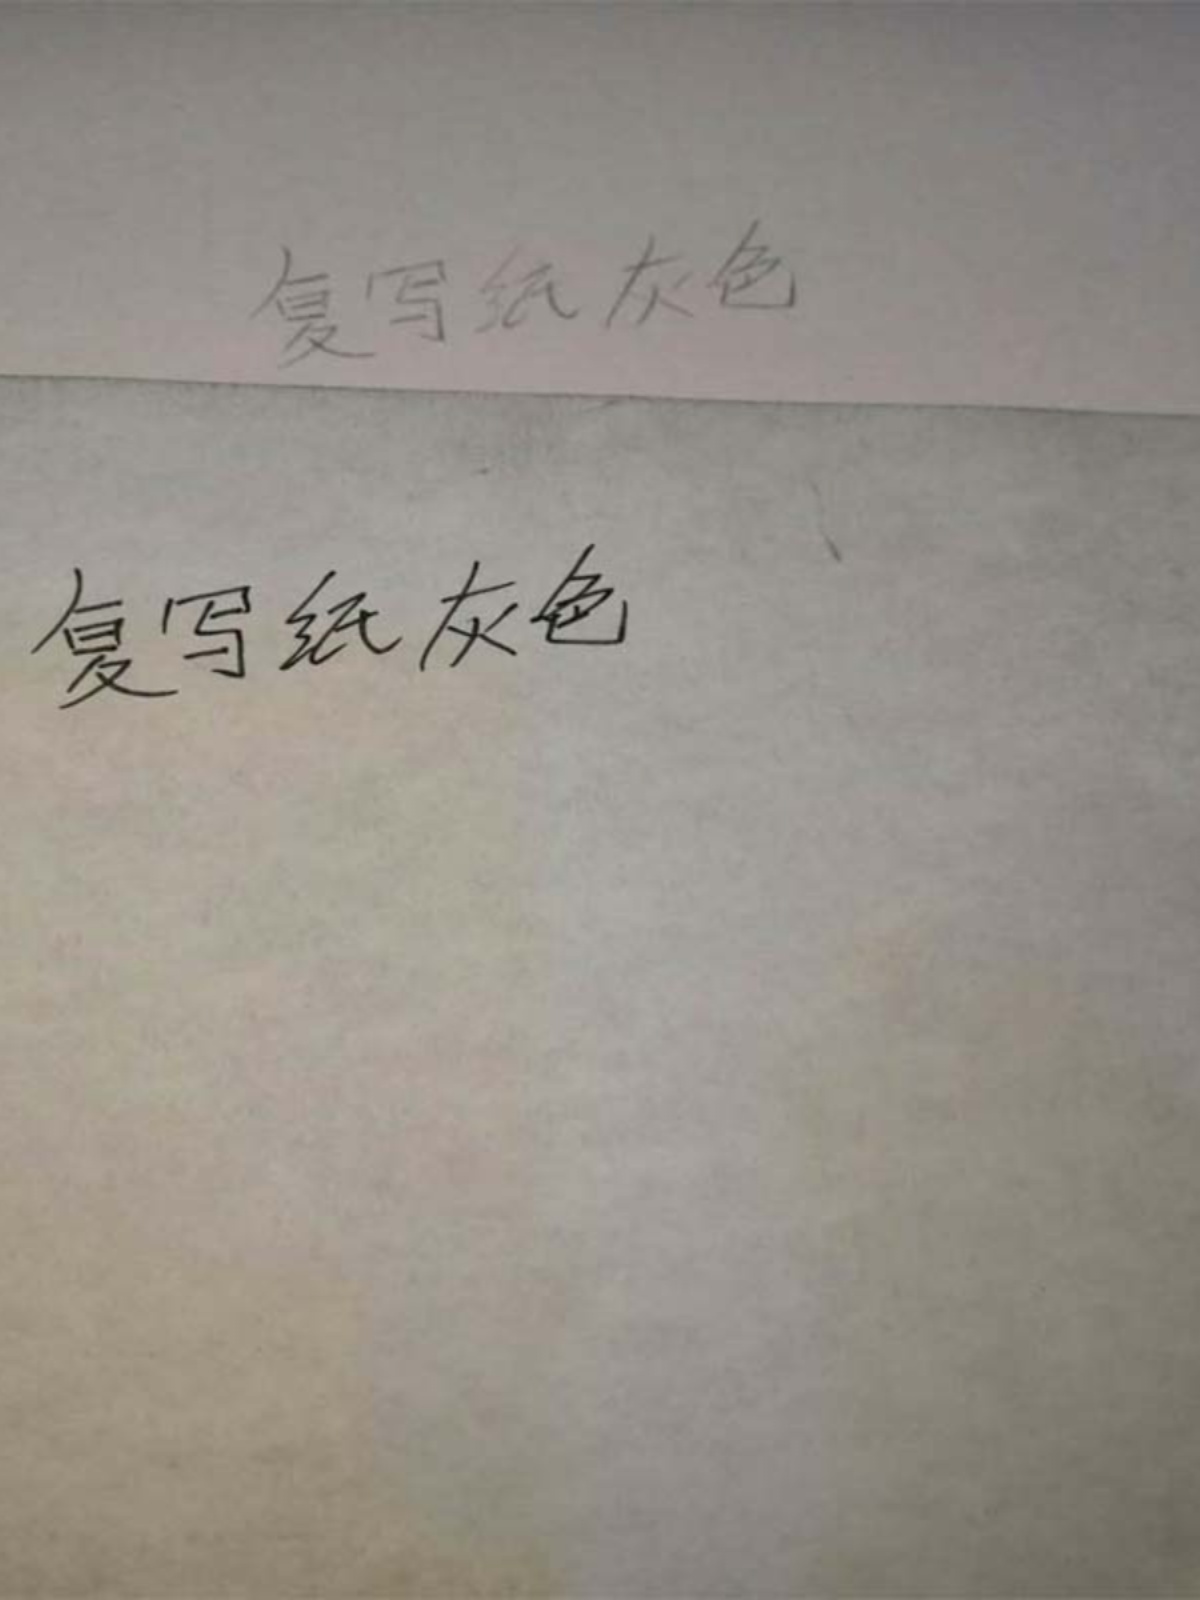 复写纸灰色
复写纸灰色